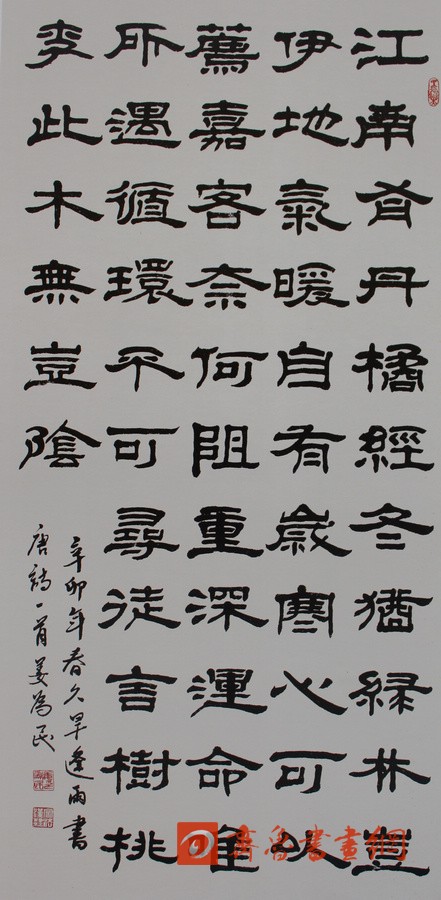 江南有丹橘經冬猶緑林豈
伊地氣暖自有歲寒心可以
薦嘉客奈何阻重深運命
所遇循環不可尋徒言樹桃
李此木無豈陰
辛卯年春久旱逢雨書
唐詩一首姜為民
齊魯書畫網